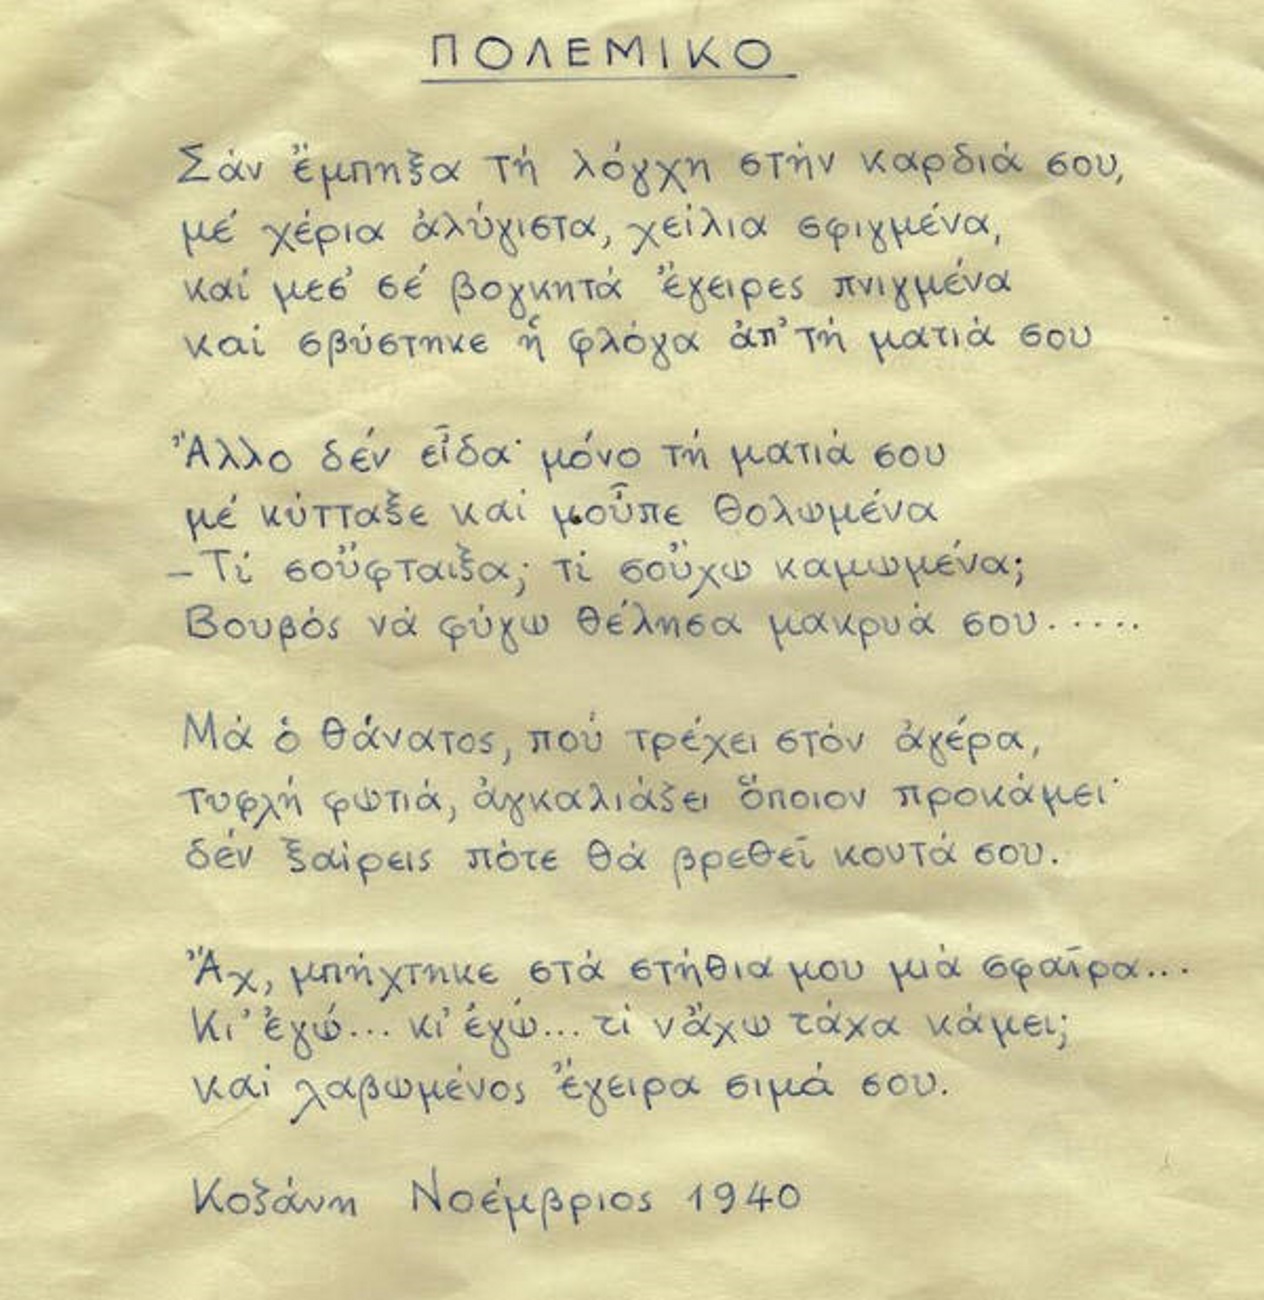 ΠΟΛΕΜΙΚΟ
Σάν ἔμπηξα τή λόγχη στήν καρδιά σου,
μέ χέρια ἀλύγιστα, χείλια σφιγμένα,
καί μεσ' σέ βογκητά ἔγειρες πνιγμένα
καί σβύστηκε ἡ φλόγα ἀπ' τή ματιά σου
Ἄλλο δέν εἶδα· μόνο τή ματιά σου
μέ κύτταξε καί μοὖπε θολωμένα
–Τί σοὔφταιξα; τί σοὔχω καμωμένα;
Βουβός νά φύγω θέλησα μακρυά σου.....
Μά ὁ θάνατος, πού τρέχει στόν ἀγέρα,
τυφλή φωτιά, ἀγκαλιάζει ὅποιον προκάμει·
δέν ξαίρεις πότε θά βρεθεῖ κοντά σου.
Ἄχ, μπήχτηκε στά στήθια μου μιά σφαῖρα...
Κι' ἐγώ... κι' ἐγώ... τί νἄχω τάχα κάμει;
καί λαβωμένος ἔγειρα σιμά σου.
Κοζάνη Νοέμβριος 1940